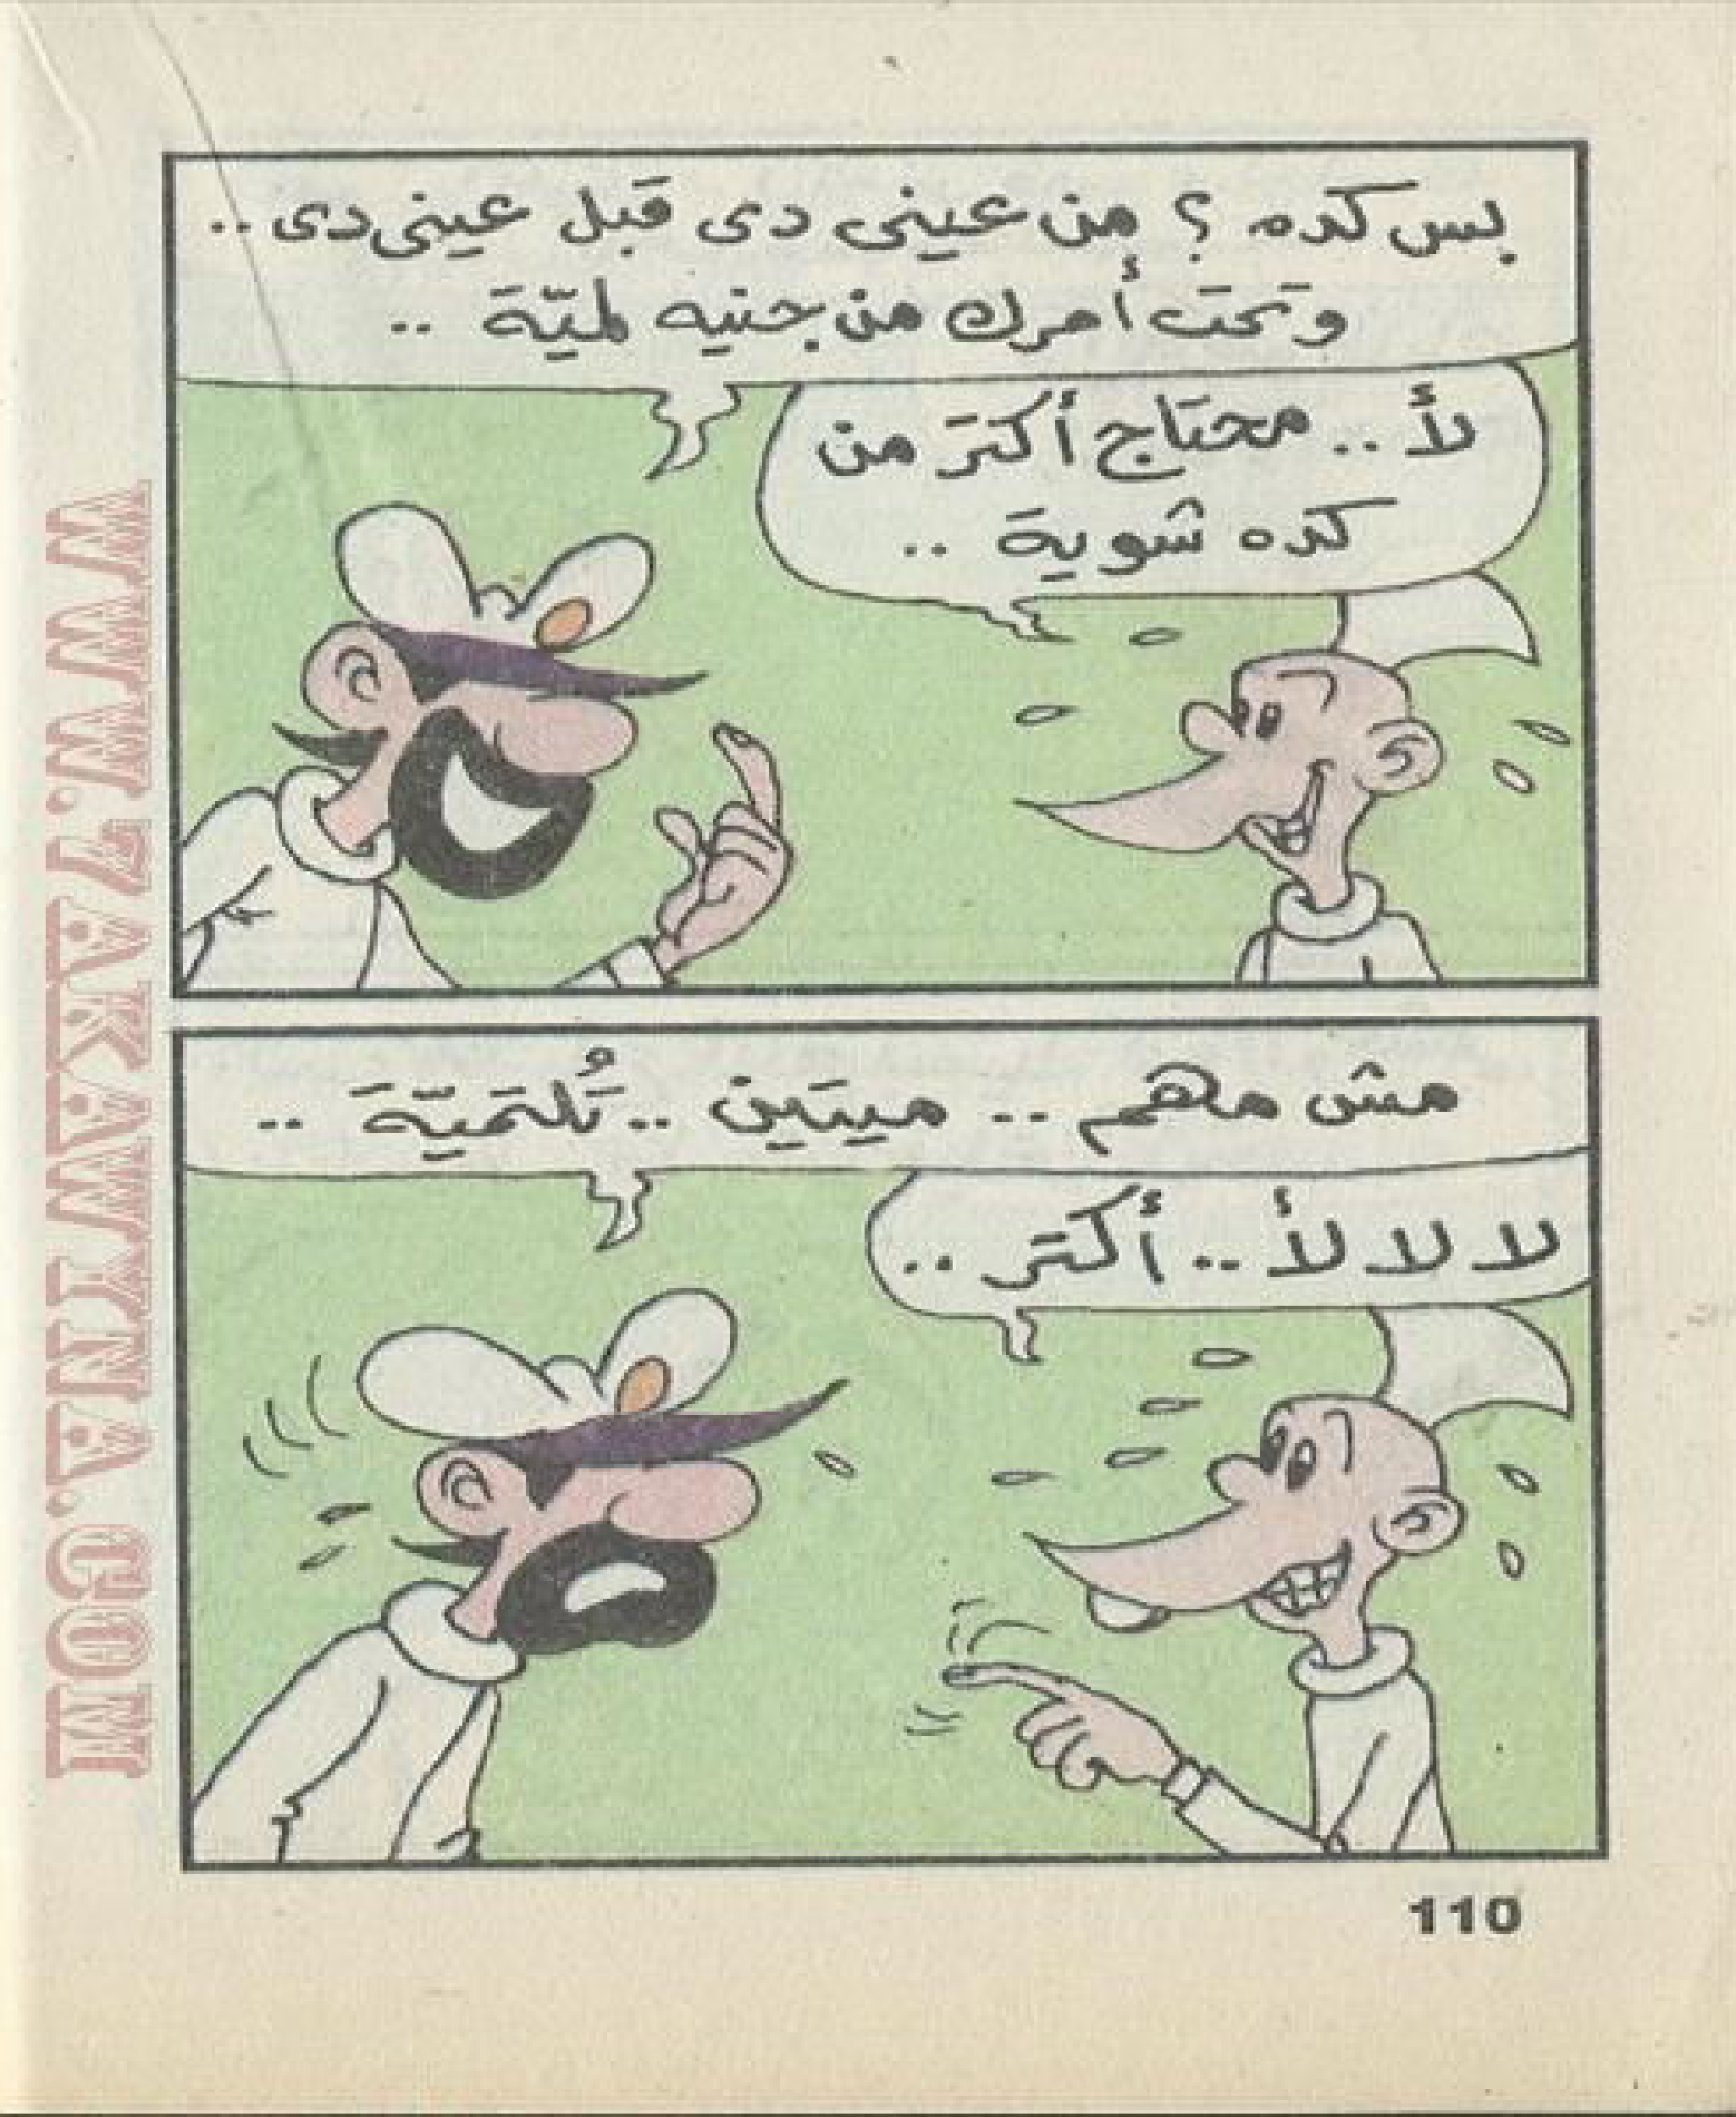 بس كده ؟ من عينى دى قبل عينى دى ..
وتحت أمرك من جنيه لميّة ..
لأ .. محتاج أكتر من
كده شوية ..
مش مهم .. ميتين .. تُلتميّة ..
لا لا لأ .. أكتر ..
110
WWW.7AKAWTNA.COM